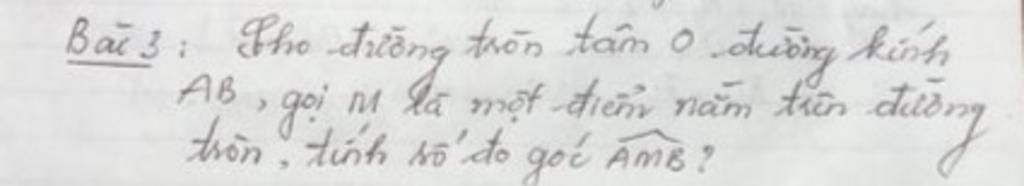 Bài 3: Cho đường tròn tâm O đường kính
AB, gọi M là một điểm nằm trên đường
tròn, tính số đo góc AMB?